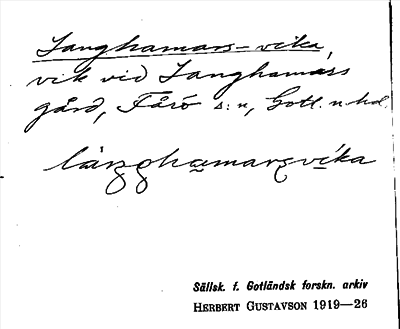 Langhamars-vika,
vik vid Langhamars
gård, Fårö s:n, Gotl. n. hd.
lànghamarsvíka
Sällsk. f. Gotländsk forskn. arkiv
HERBERT GUSTAVSON 1919—26